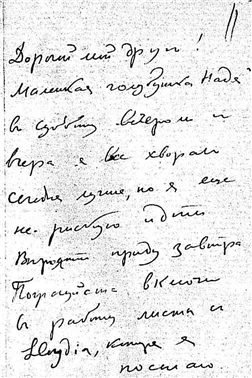 11
Дорогой мой друг!
Маленькая голубушка Надя
в субботу вечером и
вчера я все хворал
сегодня лучше, но я еще
не рискую идти
приду завтра
Пожалуйста включи
в работу листа и
которые я
посылаю.